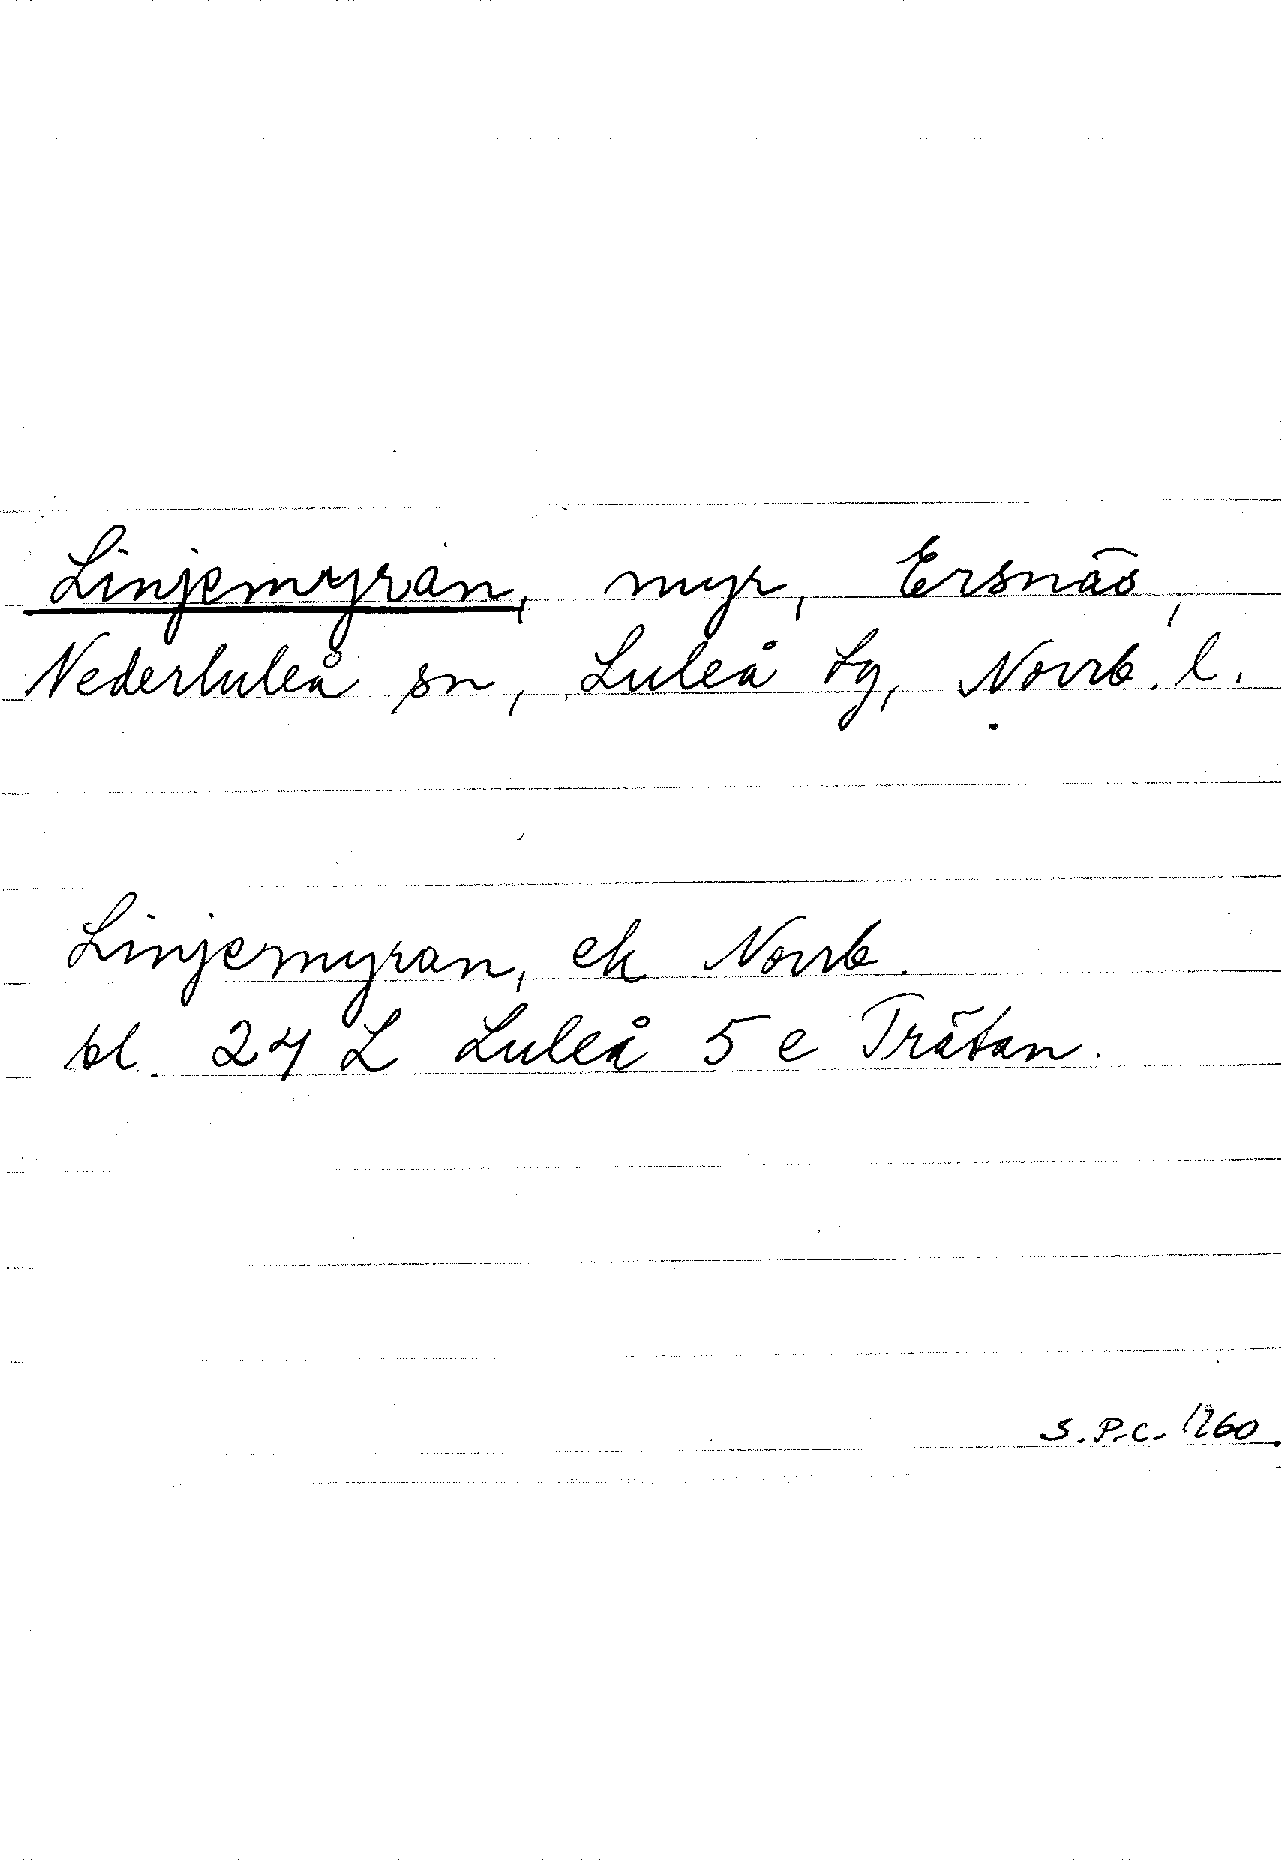 Linjemyran, myr, Ersnäs,
Nederluleå sn, Luleå tg, Norrb. l.
Linjemyran, ek Norrb.
bl. 24 L Luleå 5 e Trätan.
S.P.C. 1260.